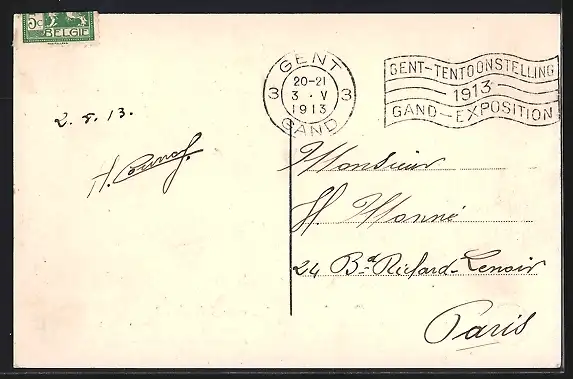 5c
BELGIË
GENT
20-21
3 3 · V 3
1913
GAND
GENT-TENTOONSTELLING
1913
GAND-EXPOSITION
2. 5. 13.
H.
Monsieur
H. Monné
24 Bd Richard-Lenoir
Paris